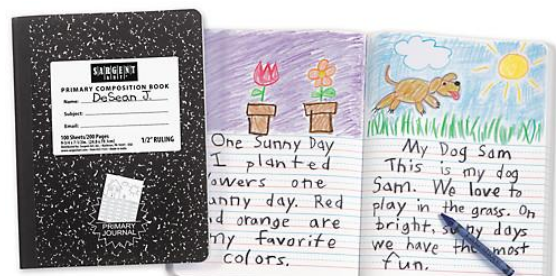 SARGENT
PRIMARY COMPOSITION BOOK
Name: DeSean J.
Subject:
Email:
100 Sheets/200 Pages
1/2" RULING
PRIMARY
JOURNAL
One Sunny Day
I planted
owers one
unny day. Red
d orange are
my favorite
colors.
My Dog Sam
This is my dog
Sam. We love to
play in the grass. On
bright, su ny days
we have the most
fun.